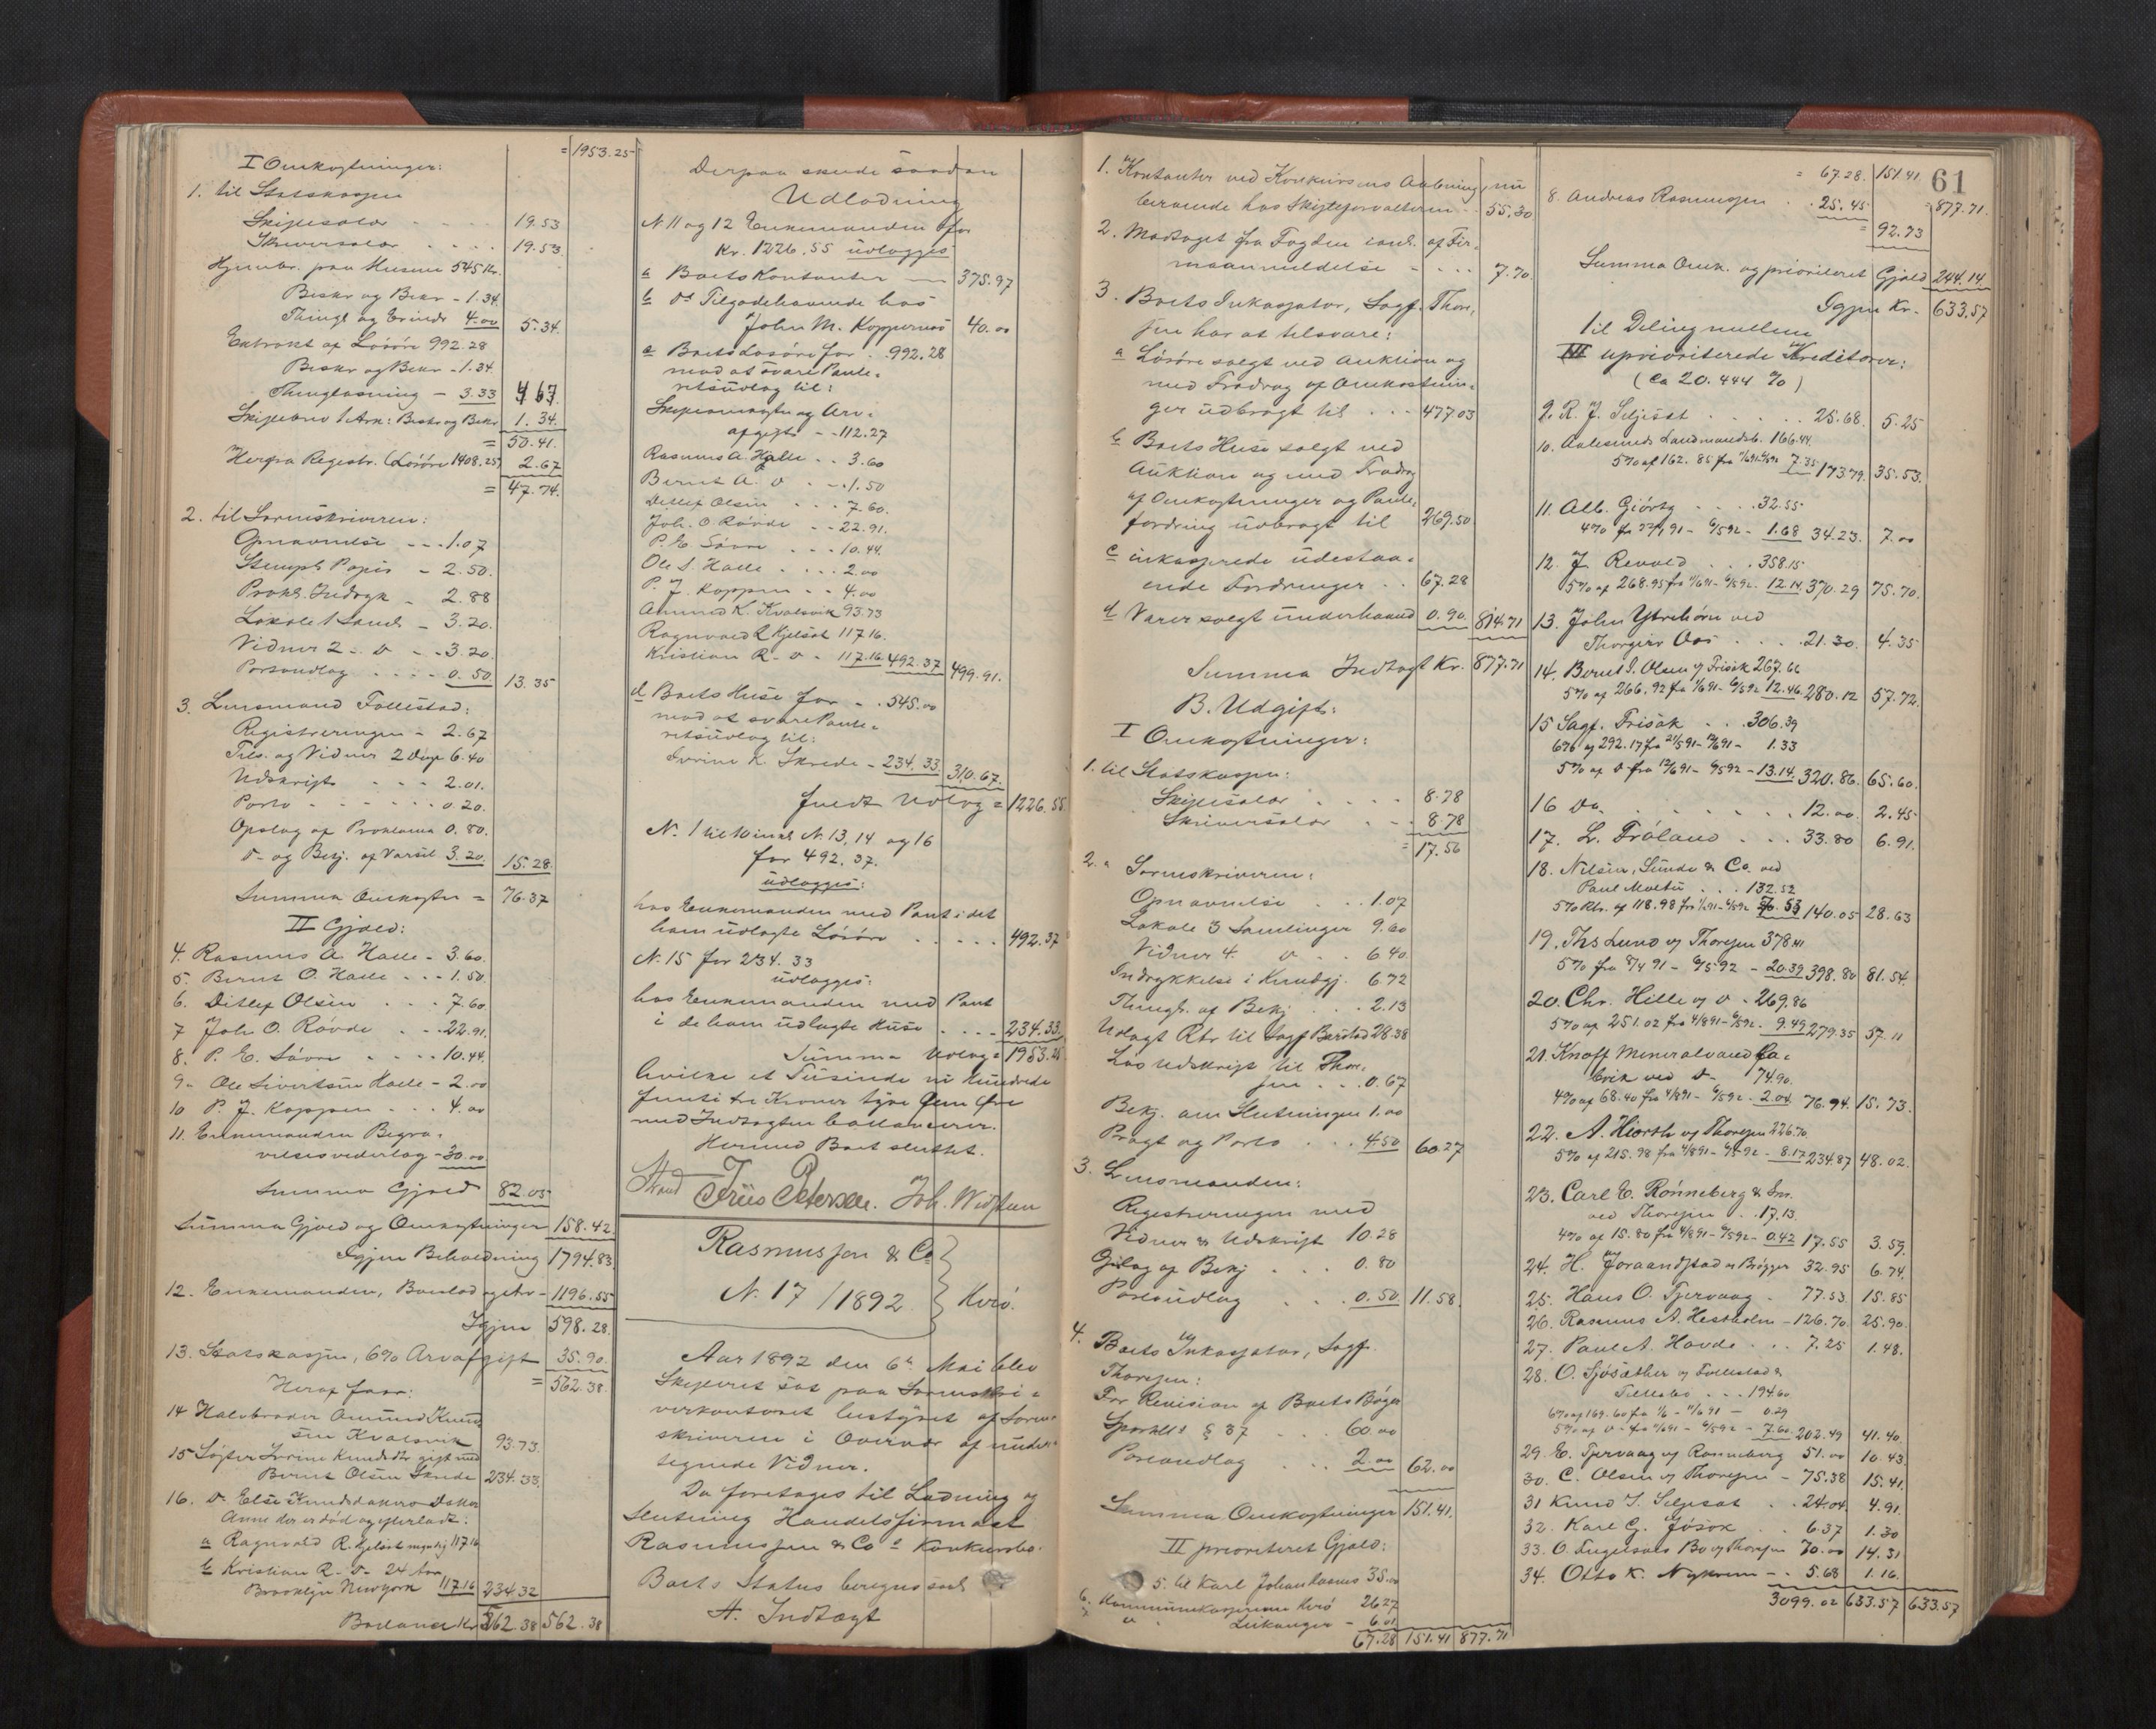 = 1953.25
I Omkostninger:
1. til Statskassen
Skiftesalær - - - - 19.53
Skriversalær - - - - 19.53
Hjemler. paa Husene 545 Kr.
Beskr og Bekr - 1.34.
Thingl og Erindr 4.00 5.34.
Extrakt af Løsøre 992.28
Beskr og Bekr - 1.34.
Thinglæsning - 3.33 4 67.
Skiftebrev 1 Ark: Beskr og Bekr 1. 34.
= 50.41.
Herfra Registr. (Løsøre 1408.25) 2.67
= 47.74.
2. til Sorenskriveren:
Opnævnelse - - - 1.07
Stemplt Papir - 2.50.
Prokl. Indryk - 2.88
Lokale 1 Saml. - 3.20.
Vidner 2 - D - - 3.20.
Portoudlæg - - - - 0.50 13.35
3. Lensmand Follestad:
Registreringen - 2.67
Tils. og Vidner 2 Dage 6.40
Udskrift - - - 2.01.
Porto - - - - - - 0.20.
Opslag af Proklama 0.80.
D- og Bekj. af Varsel 3.20. 15.28.
Summa Omkostn = 76.37
II Gjæld:
4. Rasmus A. Halle - 3.60.
5. Bernt O. Halle - - - 1.50.
6. Ditlef Olsen - - - 7.60
7 Joh. O. Røvde - - - 22.91.
8. P. E. Søvre - - - - 10.44.
9. Ole Sivertsen Halle - 2.00
10 P. J. Koppen - - - 4.00
11. Enkemanden Begra-
velsesvederlag - 30.00
Summa Gjæld 82.05
Summa Gjæld og Omkostninger 158.42
Igjen Beholdning 1794.83
12. Enkemanden, Boeslod - 1196.55
Igjen 598.28.
13. Statskassen, 6% Arvafgift 35.90.
= 562.38.
Heraf faar:
14 Halvbroder Amund Knud-
sen Kvalsvik 93.73.
15 Søster Serine Knudsdtr gift med
Bernt Olsen Skrede 234.33.
16. D. Else Knudsdatters Datter
Anne der er død og efterladt:
a Ragnvald R. Kjelsæt myndig 117 16
b Kristian R - D - 24 Aar
Brooklyn New York 117.16 234 32
Balance Kr. 562.38 562.38
Derpaa skede saadan
Udlodning
N. 11 og 12 Enkemanden for
Kr. 1226.55 udlægges
a Boets Kontanter - 375.97
b Ds Tilgodehavende hos
John M. Koppernæs 40.00
c Boets Løsøre for - 992.28
mod at svare Pante-
retsudlæg til:
Skifteomkostn og Arv-
afgift - - 112.27
Rasmus A. Halle - - 3.60
Bernt A. D - - 1.50
Ditlef Olsen - - - 7.60.
Joh. O Røvde - - 22.91.
P. E. Søvre - - - 10.44.
Ole S. Halle - - - - 2.00
P. J. Koppen - - 4.00
Amund K. Kvalsvik 93.73
Ragnvald R Kjelsæt 117 16.
Kristian R - D - 117.16 492.37 499.91.
d Boets Huse for - - 545.00
mod at svare Pante-
retsudlæg til:
Serine K. Skrede - 234.33 310.67.
fuldt Udlæg = 1226.55
N. 1 til 10 incl. N. 13, 14 og 16
for 492.37.
udlægges:
hos Enkemanden med Pant i det
ham udlagte Løsøre - - - - - 492.37
N. 15 for 234.33
udlægges:
hos Enkemanden med Pant
i de ham udlagte Huse - - - - 234.33.
Summa Udlæg = 1953.25
hvilke et Tusinde ni Hundrede
femti tre Kroner tyve fem Øre
med Indtægten ballancerer.
Hermed Boet sluttet.
Strand Friis Petersen. Joh. Widsteen
Rasmussen & Co
N. 17 / 1892. Herø.
Aar 1892 den 6te Mai blev
Skifteret sat paa Sorenskri-
verkontoret bestyret af Soren-
skriveren i Overvær af under-
tegnede Vidner.
Da foretages til Ladning og
Slutning Handelsfirmaet
Rasmussen & Co s Konkursbo.
Boets Status beregnes saal
A. Indtægt
61
1. Kontanter ved Konkursens Aabning, nu
beroende hos Skifteforvalteren - - 55.30
2. Modtaget fra Fogden iand. af Fir-
maanmeldelse - - - - 7.70
3. Boets Inkassator, Sagf. Thore-
sen har at tilsvare:
a Løsøre solgt ved Auktion og
med Fradrag af Omkostnin-
ger udbragt til - - - 477.03
b Boets Huse solgt ved
Auktion og med Fradrag
af Omkostninger og Pante-
fordring udbragt til 269.50.
c inkasserede udestaa-
ende Fordringer - - 67.28
d Varer solgt underhaand 0.90. 814.71
Summa Indtægt Kr. 877.71
B. Udgift:
I Omkostninger:
1. til Statskassen:
Skiftesalær - - - - 8.78
Skriversalær - - - 8.78
= 17.56
2. " Sorenskriveren:
Opnævnelse - - - 1.07
Lokale 3 Samlinger 9.60
Vidner 4. D - - 6.40.
Indrykkelse i Kundgj. 6.72
Thingl. af Bekj - - - 2.13
Udlagt Rbr til Sagf Barstad 28.38
Løs Udskrift til Thore-
sen - - - 0.67
Bekj. om Slutningen 1.00
Protg og Porto - - - 4.50 60.27
3. Lensmanden:
Registreringen med
Vidner & Udskrift 10.28
Opslag af Bekj - - - 0.80
Portoudlæg - - - 0.50 11.58.
4. Boets Inkassator, Sagf.
Thoresen:
For Revision af Boets Bøger
Sportl § 87 - - - 60.00
Portoudlæg - - - 2.00 62.00
Summa Omkostninger 151.41.
II prioriteret Gjæld:
5. til Karl Johan Rasmus 35.00
6. Kommunekassereren Herø 26 27
7 D Leikanger - 6.01
67.28 151.41 877.71
= 67.28. 151.41. = 877.71.
8. Andreas Rasmussen - - 25.45
= 92.73
Summa Omk. og prioriteret Gjæld 244.14.
Igjen Kr. - 633.57
til Deling mellem
III uprioriterede Kreditorer:
(Ca 20.444 %)
9. R. J. Seljesæt - - - - 25.68. 5.25
10. Aalesunds Landmandsb. 166.44.
5% af 162.85 fra 11/6 91 - 6/5 92 7.35 173 79. 35.53.
11. Alb. Giørtz - - - 32.55
4% fra 27/1 91 - 6/5 92 - 1.68 34.23. 7.00
12. J. Revold - - - 358.15
5% af 268.95 fra 11/6 91 - 6/5 92. 12.14. 370.29 75.70.
13. John Ytrehorn ved
Thorgeir Oos - - - 21.30. 4.35
14. Bernt I. Olsen v/ Frisak 267.66
5% af 266.92 fra 11/6 91 - 6/5 92 12.46. 280.12 57.72.
15 Sagf. Frisak - - - 306.39
6% af 292.17 fra 21/5 91 - 12/6 91 - 1.33
5% af D fra 12/6 91 - 6/5 92 - 13.14. 320.86. 65.60.
16 Do. - - - - - - 12.00. 2.45
17. L. Frøland - - - 33.80 6.91.
18. Nilsen, Sunde & Co. ved
Paul Moltu - - - 132.52
5% Rtr. af 118.98 fra 1/2 91 - 6/5 92 53 140.05 28.63
19. Ths Lund v/ Thoresen 378.41
5% fra 8/4 91 - 6/5 92 - 20.39 398.80 81.54.
20. Chr. Hille v/ D - 269.86
5% af 251.02 fra 4/8 91 - 6/5 92. 9.49 279.35 57.11
21. Knoff Mineralvand Fa-
brik ved D - 74.90.
4% af 68.40 fra 4/8 91 - 6/5 92 - 2.04. 76.94. 15.73.
22. A. Hiorth v/ Thoresen 226.70.
5% af 215.98 fra 4/8 91 - 6/5 92 - 8.17 234.87 48.02.
23. Carl E. Rønneberg & Søn.
ved Thoresen - - 17.13.
4% af 15.80 fra 4/8 91 - 6/5 92 - 0.42 17.55 3.59.
24. H. Joraandstad v/ Brøgger 32.95 6.74.
25. Hans O. Tjervaag - 77.53 15.85
26. Rasmus A. Hestholm - 126.70. 25.90.
27. Paul A. Havde - - - 7.25 1.48.
28. O. Sjøsæther v/ Follestad &
- - - 194.60
6% af 169.60 fra 1/6 - 11/6 91 - 0.29
5% af D - fra 11/6 91 - 6/5 92 - 7.60. 202.49 41.40.
29. E. Tjervaag v/ Rønneberg 51.00 10.43.
30. C. Olsen v/ Thoresen - 75.38 15.41.
31 Knud J. Seljesæt - - 24.04 4.91.
32. Karl G. Jøsok - - - 6.37 1.30
33. O. Engelsæs Bo v/ Thoresen 70.00 14.31
34. Otto K. Nykrem - - - 5.68 1.16.
3099.02 633.57 633.57